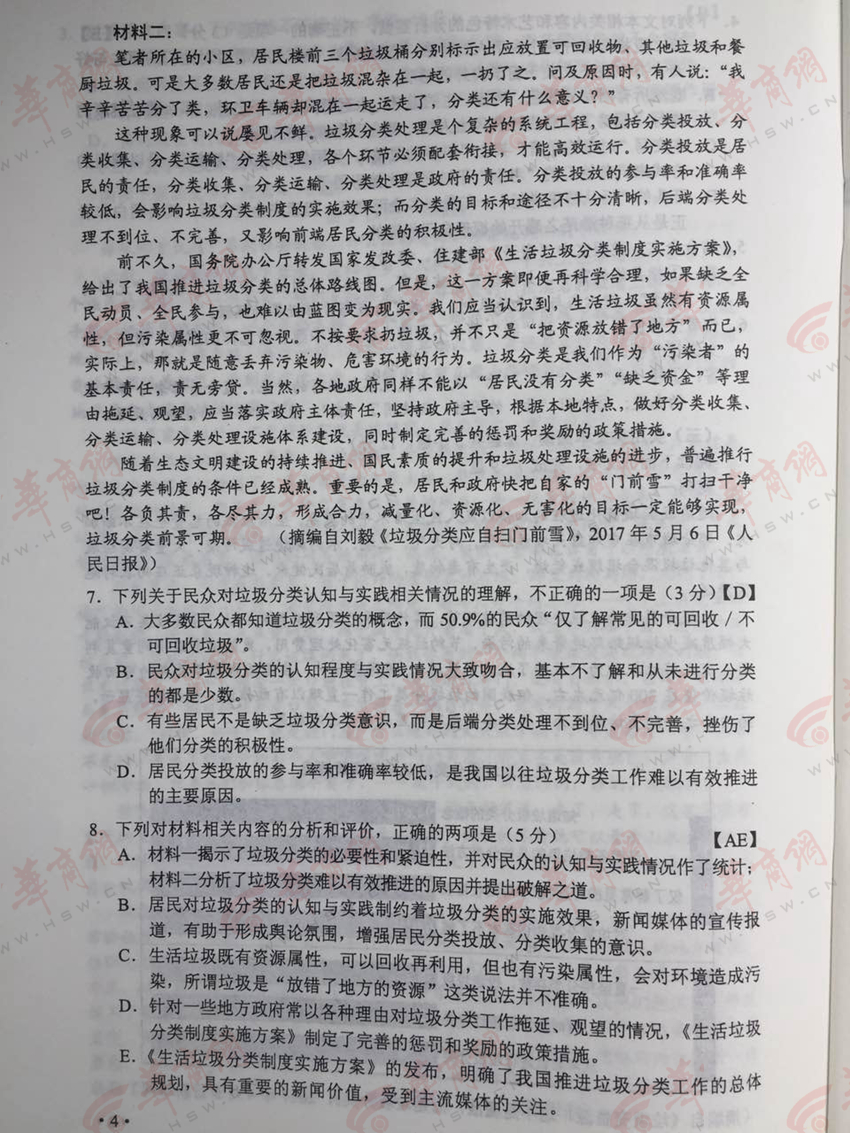 材料二：
笔者所在的小区，居民楼前三个垃圾桶分别标示出应放置可回收物、其他垃圾和餐
厨垃圾。可是大多数居民还是把垃圾混杂在一起，一扔了之。问及原因时，有人说：“我
辛辛苦苦分了类，环卫车辆却混在一起运走了，分类还有什么意义？”
这种现象可以说屡见不鲜。垃圾分类处理是个复杂的系统工程，包括分类投放、分
类收集、分类运输、分类处理，各个环节必须配套衔接，才能高效运行。分类投放是居
民的责任，分类收集、分类运输、分类处理是政府的责任。分类投放的参与率和准确率
较低，会影响垃圾分类制度的实施效果；而分类的目标和途径不十分清晰，后端分类处
理不到位、不完善，又影响前端居民分类的积极性。
前不久，国务院办公厅转发国家发改委、住建部《生活垃圾分类制度实施方案》，
给出了我国推进垃圾分类的总体路线图。但是，这一方案即便再科学合理，如果缺乏全
民动员、全民参与，也难以由蓝图变为现实。我们应当认识到，生活垃圾虽然有资源属
性，但污染属性更不可忽视。不按要求扔垃圾，并不只是“把资源放错了地方”而已，
实际上，那就是随意丢弃污染物、危害环境的行为。垃圾分类是我们作为“污染者”的
基本责任，责无旁贷。当然，各地政府同样不能以“居民没有分类”“缺乏资金”等理
由拖延、观望，应当落实政府主体责任，坚持政府主导，根据本地特点，做好分类收集、
分类运输、分类处理设施体系建设，同时制定完善的惩罚和奖励的政策措施。
随着生态文明建设的持续推进、国民素质的提升和垃圾处理设施的进步，普遍推行
垃圾分类制度的条件已经成熟。重要的是，居民和政府快把自家的“门前雪”打扫干净
吧！各负其责，各尽其力，形成合力，减量化、资源化、无害化的目标一定能够实现，
垃圾分类前景可期。 （摘编自刘毅《垃圾分类应自扫门前雪》，2017 年 5 月 6 日《人
民日报》）
7．下列关于民众对垃圾分类认知与实践相关情况的理解，不正确的一项是（3 分）【D】
A．大多数民众都知道垃圾分类的概念，而 50.9%的民众“仅了解常见的可回收／不
可回收垃圾”。
B．民众对垃圾分类的认知程度与实践情况大致吻合，基本不了解和从未进行分类
的都是少数。
C．有些居民不是缺乏垃圾分类意识，而是后端分类处理不到位、不完善，挫伤了
他们分类的积极性。
D．居民分类投放的参与率和准确率较低，是我国以往垃圾分类工作难以有效推进
的主要原因。
8．下列对材料相关内容的分析和评价，正确的两项是（5 分） 【AE】
A．材料一揭示了垃圾分类的必要性和紧迫性，并对民众的认知与实践情况作了统计；
材料二分析了垃圾分类难以有效推进的原因并提出破解之道。
B．居民对垃圾分类的认知与实践制约着垃圾分类的实施效果，新闻媒体的宣传报
道，有助于形成舆论氛围，增强居民分类投放、分类收集的意识。
C．生活垃圾既有资源属性，可以回收再利用，但也有污染属性，会对环境造成污
染，所谓垃圾是“放错了地方的资源”这类说法并不准确。
D．针对一些地方政府常以各种理由对垃圾分类工作拖延、观望的情况，《生活垃圾
分类制度实施方案》制定了完善的惩罚和奖励的政策措施。
E．《生活垃圾分类制度实施方案》的发布，明确了我国推进垃圾分类工作的总体
规划，具有重要的新闻价值，受到主流媒体的关注。
·4·
華商網
WWW.HSW.CN